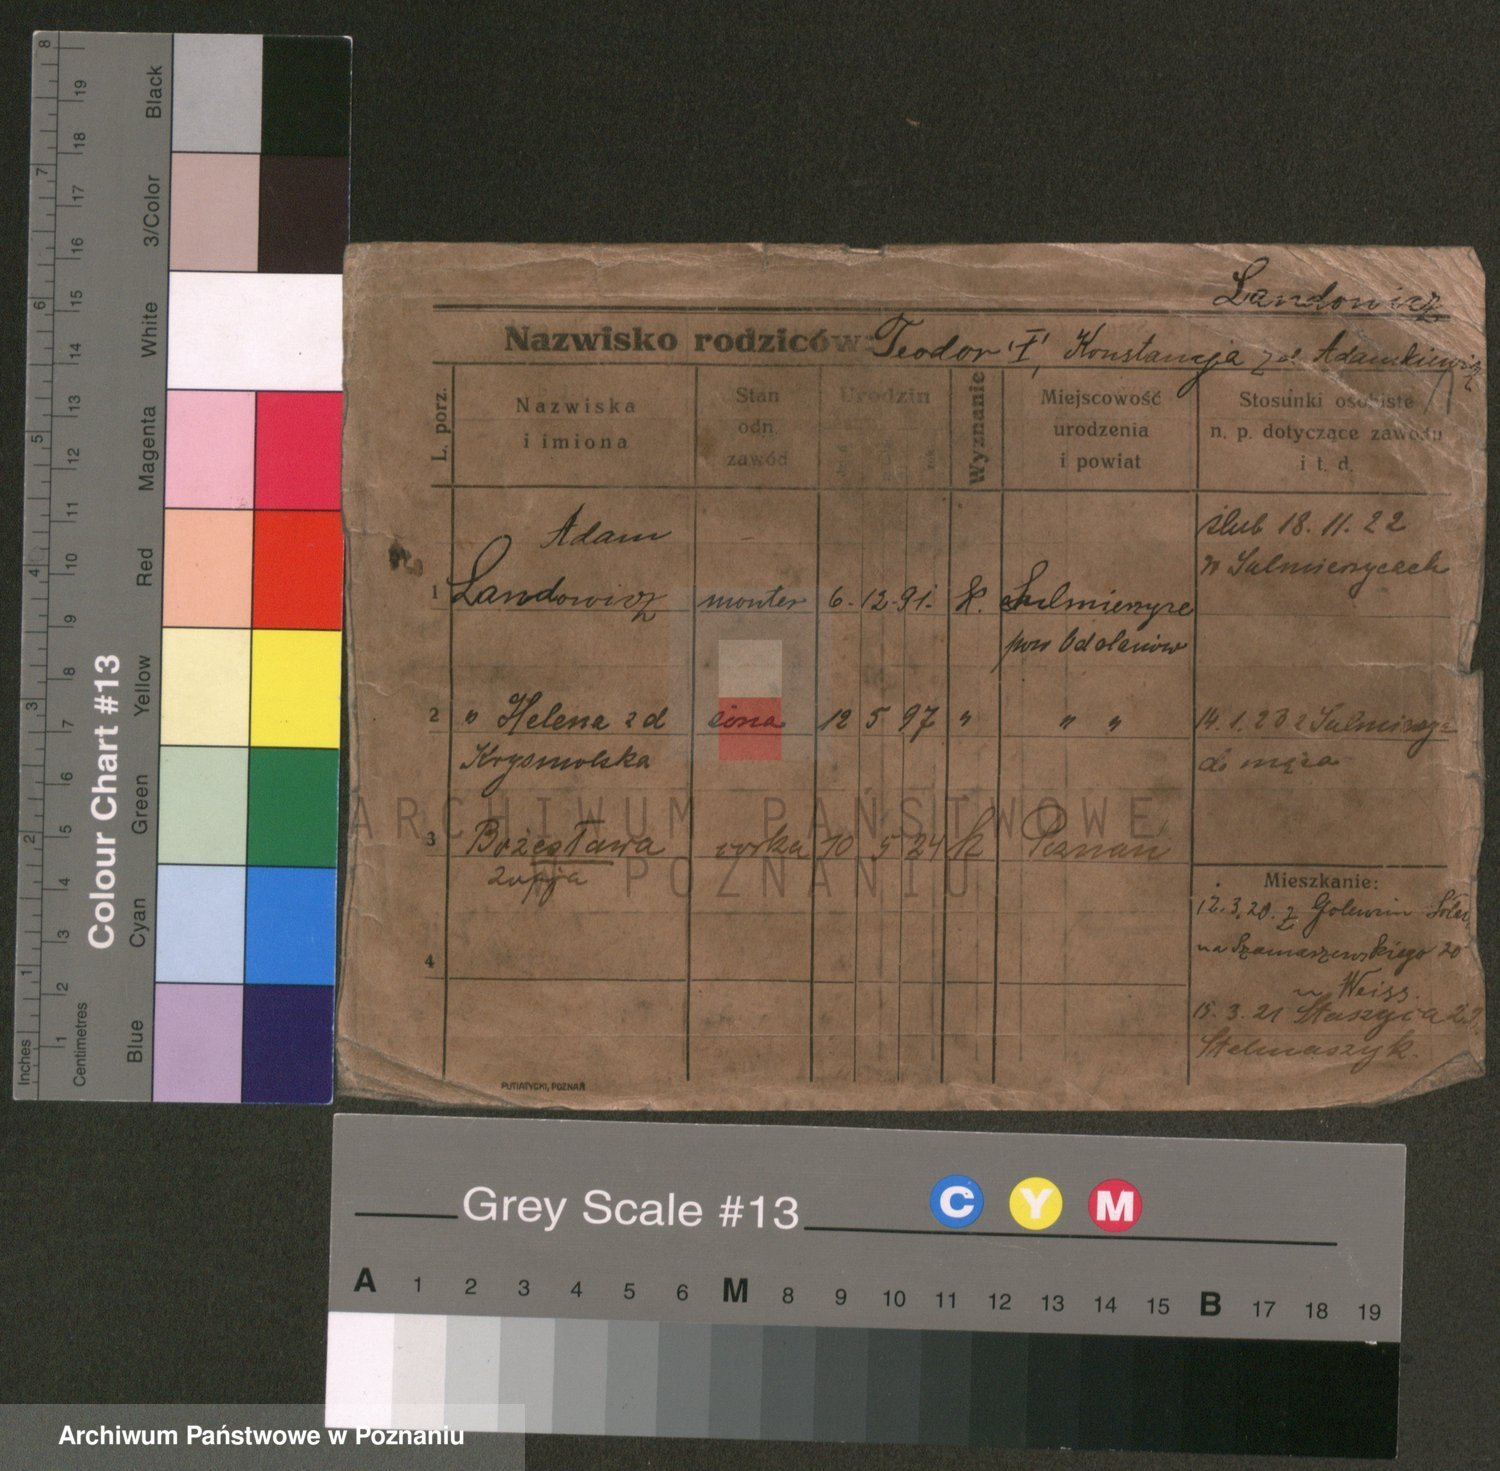 Landowicz
Nazwisko rodziców: Teodor, Konstancja z d. Adamkiewicz
L. porz.
Nazwiska
i imiona
Stan
odn.
zawód
Urodzin
Wyznanie
Miejscowość
urodzenia
i powiat
Stosunki osobiste
n. p. dotyczące zawodu
i t. d.
Adam
1 Landowicz monter 6. 12. 91. k. Sulmierzyce
pow Odolanów
ślub 18. 11. 22
w Sulmierzycach
2 " Helena z d żona 12 5 97 " " "
Krysmolska
14. 1. 23 z Sulmierzyc
do męża
3 Bożesława córka 10 5 24 k Poznań
Zofja
4
Mieszkanie:
12. 3. 20. z Golencin
na Szamarzewskiego 20
u Weiss.
15. 3. 21 Staszyca 27
Stelmaszyk.
PUTIATYCKI, POZNAŃ
ARCHIWUM PAŃSTWOWE
W POZNANIU
Colour Chart #13
Black
3/Color
White
Magenta
Red
Yellow
Green
Cyan
Blue
Inches 1 2 3 4 5 6 7 8
Centimetres 1 2 3 4 5 6 7 8 9 10 11 12 13 14 15 16 17 18 19
Grey Scale #13
C Y M
A 1 2 3 4 5 6 M 8 9 10 11 12 13 14 15 B 17 18 19
Archiwum Państwowe w Poznaniu